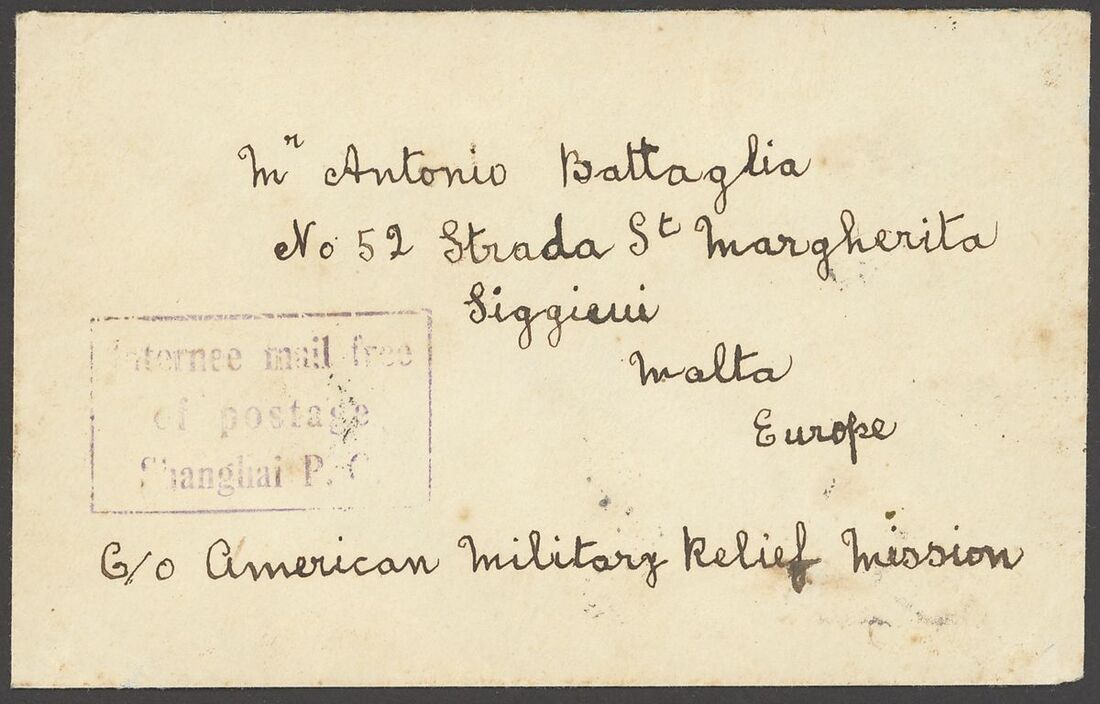 Mr Antonio Battaglia
No 52 Strada St Margherita
Siggieui
Malta
Europe
Internee mail free
of postage
Shanghai P. O.
C/o American Military Relief Mission